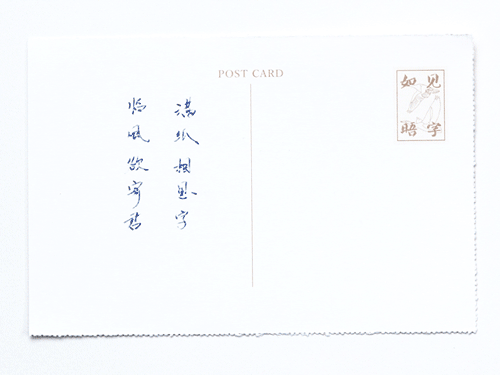 POST CARD
见字
如晤
满纸相思字
临风欲寄